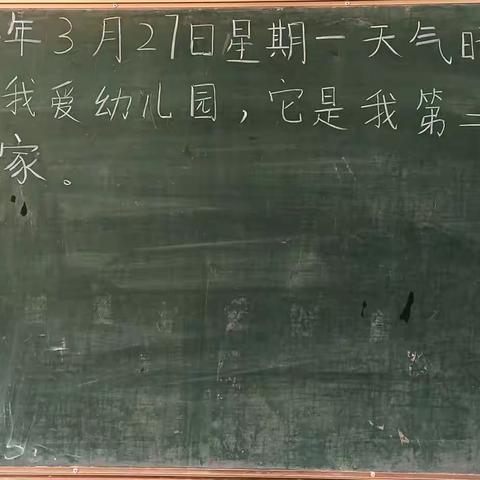 年3月27日星期一天气
我爱幼儿园，它是我第二
家。